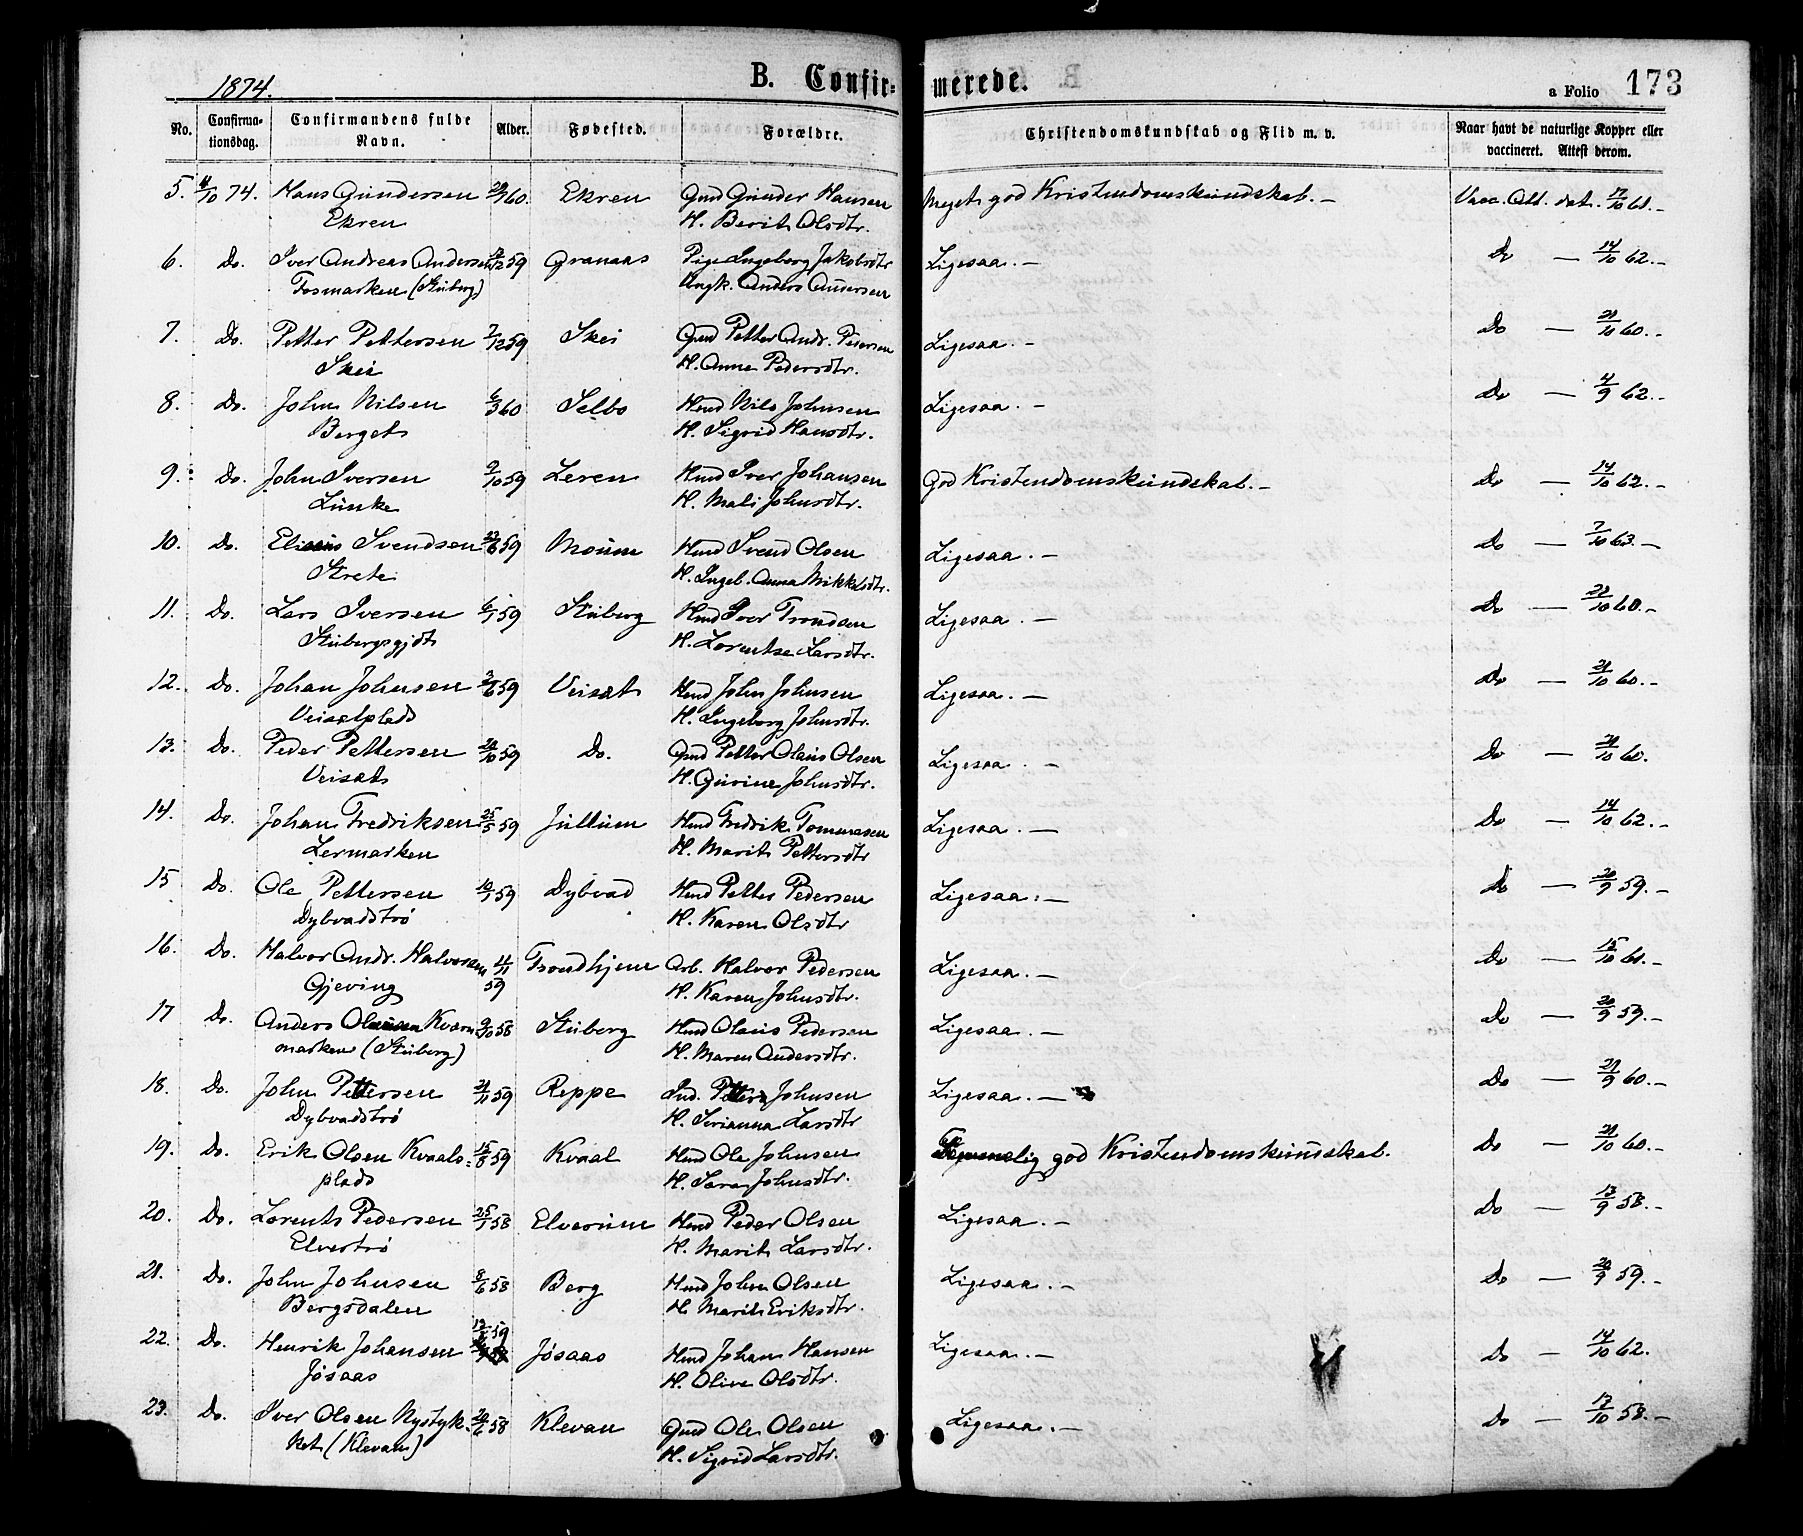 1874.
B. Confir-
merede.
a Folio 173
No.
Confirma-
tionsdag.
Confirmandens fulde
Navn.
Alder.
Fødested.
Forældre.
Christendomskundskab og Flid m. v.
Naar havt de naturlige Kopper eller
vaccineret. Attest derom.
5. 4/10 74. Hans Gundersen 60. Ekren Gmd Gunder Hansen Meget god Kristendomskundskab.- Vacc. Att. dat. 17/10 61.-
Ekren H. Berit Olsdtr.
6. Do. Iver Andreas Andersen 59 Granaas Pige Ingeborg Jakobsdtr Ligesaa.- Do - 14/10 62.-
Fosmarken (Stuberg) Ungk. Anders Andersen
7. Do. Petter Pettersen 7/12 59 Skei Gmd Petter Andr. Pedersen Ligesaa.- Do - 21/10 60.-
Skei H. Anne Pedersdtr.
8. Do. John Nilsen 6/3 60 Selbo Hmd Nils Johnsen Ligesaa.- Do - 4/9 62.-
Berget H. Sigrid Hansdtr.
9. Do. John Iversen 9/10 59 Leren Hmd Iver Johansen God Kristendomskundskab.- Do - 14/10 62.-
Lunke H. Mali Johnsdtr.
10. Do. Eliseus Svendsen 59 Mouum Hmd Svend Olsen Ligesaa.- Do - 7/10 63.-
Strete H. Ingeb. Anna Mikkelsdtr.
11. Do. Lars Iversen 6/1 59 Stuberg Hmd Iver Trondsen Ligesaa.- Do - 22/10 60.-
Stubergsgjdt H. Lorentse Larsdtr.
12. Do. Johan Johnsen 2/6 59 Veiset Hmd John Johnsen Ligesaa.- Do - 21/10 60.-
Veisetplads H. Ingeborg Johnsdtr.
13. Do. Peder Pettersen 20/10 59 Do. Gmd Petter Olaus Olsen Ligesaa.- Do - 21/10 60.
Veiset H. Gurine Johnsdtr.
14. Do. Johan Fredriksen 25/5 59 Jullum Hmd Fredrik Tommesen Ligesaa.- Do - 14/10 62.-
Lermarken H. Marit Pettersdtr
15 Do. Ole Pettersen 10/1 59 Dybvad Hmd Petter Pedersen Ligesaa.- Do - 20/9 59.-
Dybvadstrø H. Karen Olsdtr
16. Do. Halvor Andr. Halvorsen 4/11 59 Trondhjem Arb. Halvor Pedersen Ligesaa.- Do - 15/10 61.-
Gjeving H. Karen Johnsdtr.
17 Do. Anders Olausen Kværn- 9/10 58 Stuberg Hmd Olaus Pedersen Ligesaa.- Do - 20/9 59.-
marken (Stuberg) H. Maren Andersdtr.
18. Do. John Pettersen 21/11 59 Reppe Ind. Petter Johnsen Ligesaa.- Do - 21/9 60.-
Dybvadstrø H. Serianna Larsdtr
19. Do. Erik Olsen Kvaals- 15/8 59 Kvaal Hmd Ole Johnsen Temmelig god Kristendomskundskab. Do - 21/10 60.-
plads H. Sara Johnsdtr.
20. Do. Lorents Pedersen 25/1 58 Elverum Hmd Peder Olsen Ligesaa.- Do - 13/9 58.-
Elvertrø H. Marit Larsdtr.
21. Do. John Johnsen 8/6 58 Berg Hmd John Olsen Ligesaa.- Do - 20/9 59.-
Bergsdalen H. Marit Eriksdtr.
22. Do. Henrik Johansen 59 Jøsaas Hmd Johan Hansen Ligesaa.- Do - 14/10 62.
Jøsaas H. Olive Olsdtr.
23. Do. Iver Olsen Nystyk- 20/6 58 Klevan Gmd Ole Olsen Ligesaa.- Do - 17/10 58.-
ket (Klevan) H. Sigrid Larsdtr.